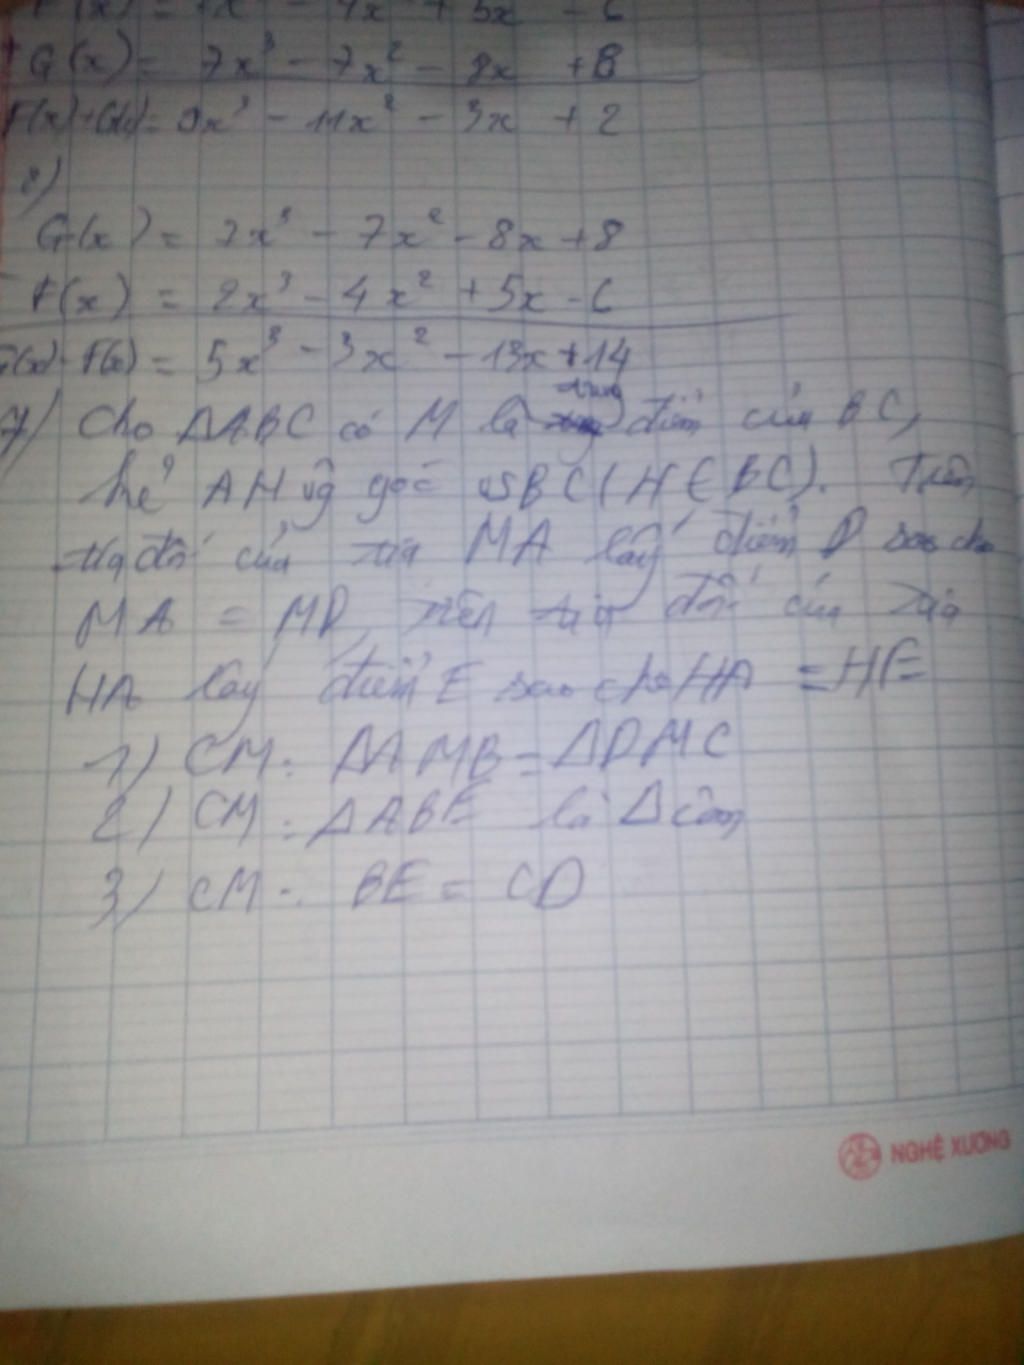 F(x) = 2x³ - 4x² + 5x - 6
+ G(x) = 7x³ - 7x² - 8x + 8
F(x)+G(x) = 9x³ - 11x² - 3x + 2
2)
G(x) = 7x³ - 7x² - 8x + 8
- F(x) = 2x³ - 4x² + 5x - 6
G(x) - F(x) = 5x³ - 3x² - 13x + 14
7/ Cho ΔABC có M là trung điểm của BC,
kẻ AH vg góc vs BC (H ∈ BC). Trên
tia đối của tia MA lấy điểm D sao cho
MA = MD, trên tia đối của tia
HA lấy điểm E sao cho HA = HE
1) CM: ΔAMB = ΔDMC
2) CM: ΔABE là Δ cân
3) CM: BE = CD
NGHỆ XƯƠNG